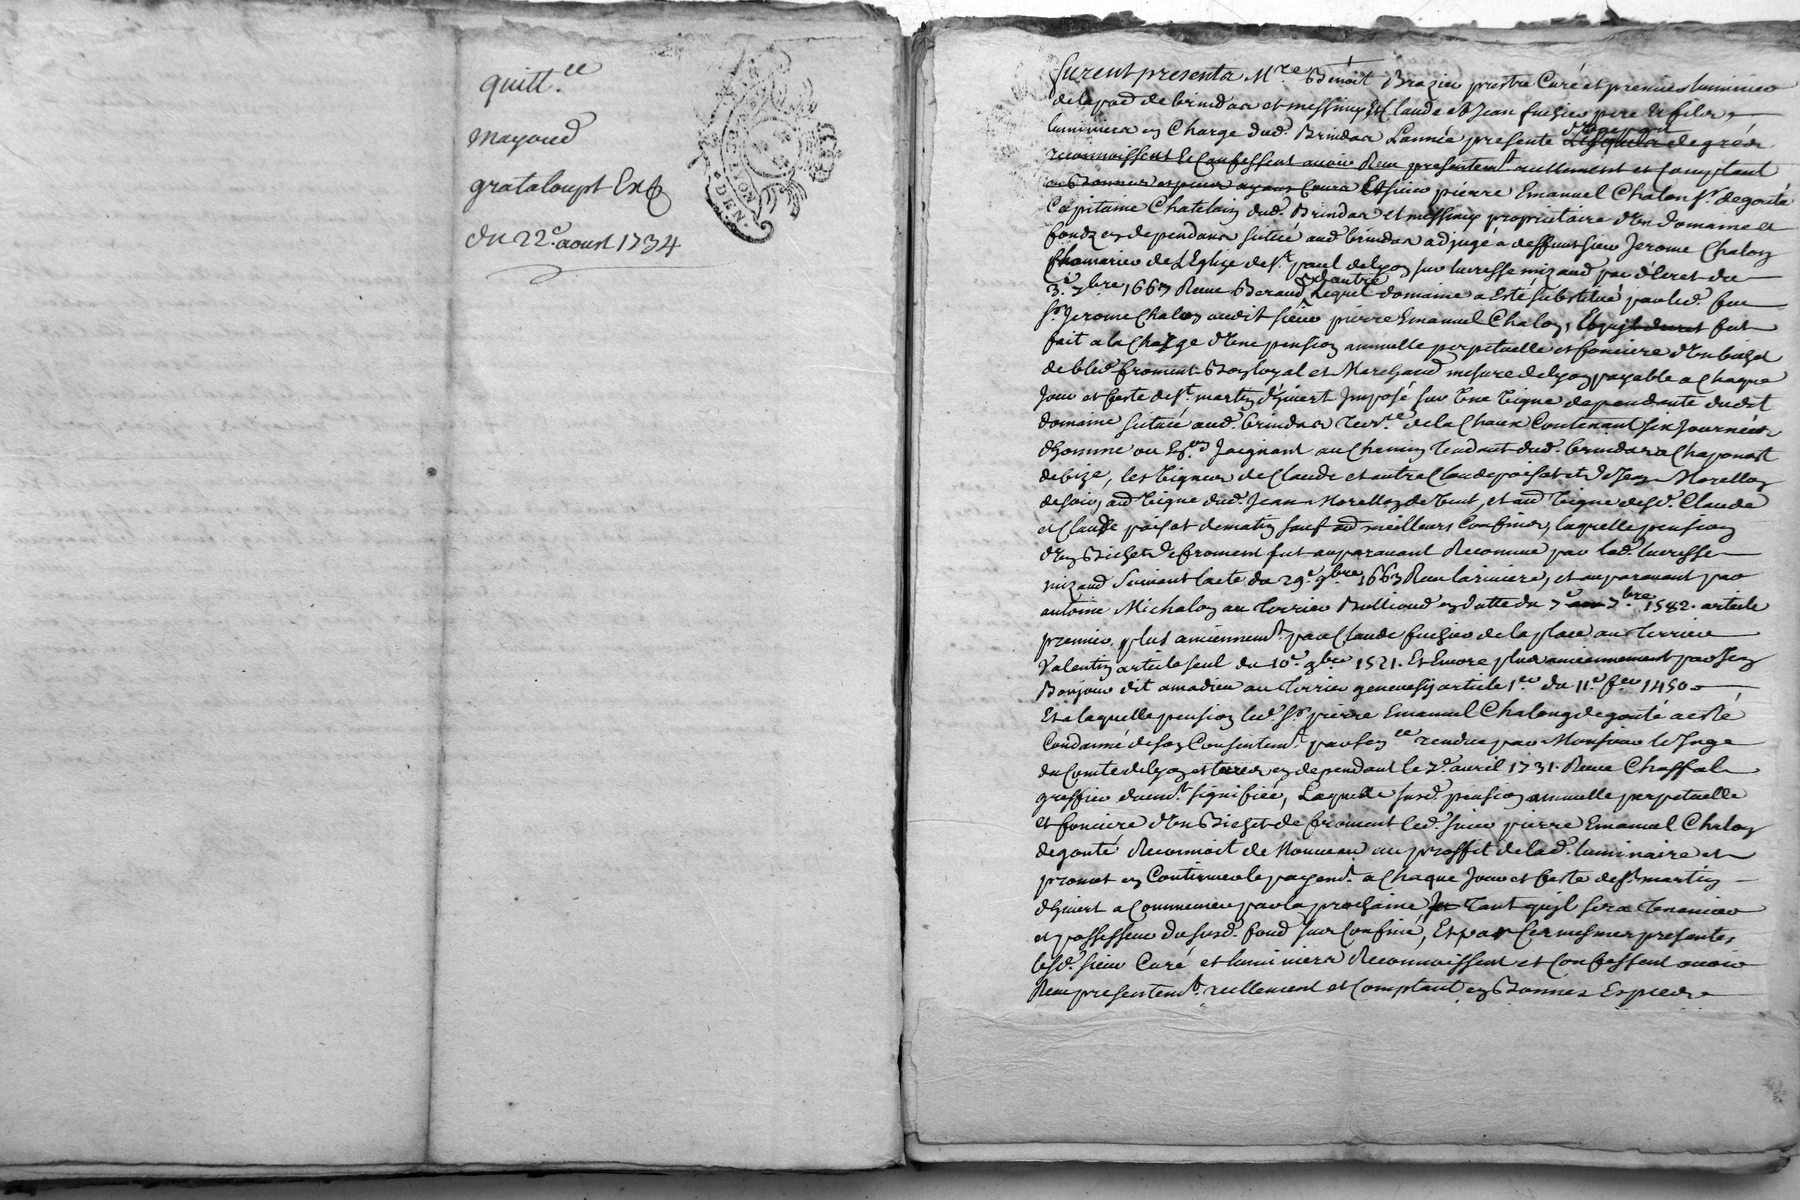 quitt.ce
mayoud
grataloupt Ex
du 22e. aoust 1734
GEN. DE LYON
furent presents Mre Benoit Brazier prestre Curé et premier luminier
de la par de brindas et messimy Et Claude et Jean fuchier pere et fils
luminiers en Charge dud. Brindas L'année presente de gré
reconnoissent et Confessent avoir Reçu presentemt. reellement et Comptant
ayant Cours sieur pierre Emanuel Chalon sr. degouté
Capitaine Chatelain dud. Brindas et messimy proprietaire d'un domaine et
fondz en dependans situé aud brindas adjugé a deffunt sieur Jerome Chalon
de L'Eglize de St. paul de lyon sur lucresse mizaud par décret du
3e. 7bre 1667 Reçu Beraud, Lequel domaine a Esté substitué par led. feu
sr. Jerome Chalon audit sieur pierre Emanuel Chalon, fut
fait a la Charge d'une pension annuelle perpetuelle et fonciere d'un bichet
de bled froment Bon loyal et Marchand mesure de lyon payable a Chaque
Jour et feste de St. martin d'hivert Imposé sur Une Vigne dependante dudit
domaine située aud. brindas Terre. de la Chaux Contenant six Journées
d'homme ou Joignant au Chemin Tendant dud. brindas a Chaponost
de bize, les Vignes de Claude et autre Claude et de Jean Morellon
de soir, aud Vigne dud. Jean Morellon de Vent, et aud Vigne desd. Claude
et Claude de matin sauf ad meilleurs Confins, laquelle pension
d'un Bichet de froment fut auparavant Reconnue par lad. lucresse
mizaud Suivant lacte du 29e. 9bre 1663 Reçu lariviere, et auparavant par
antoine Michalon au Terrier Bullioud en datte du 7e 7bre. 1582. article
premier, plus anciennemt. par Claude fuchier de la place au Terrier
Valentin article seul du 10e. 9bre 1521. Et Encore plus anciennement par Jean
Bonjour dit amadieu au Terrier genevesy article 1er du 11e fer 1450
Et a laquelle pension led. sr. pierre Emanuel Chalon degouté a esté
Condamné de son Consentemt. par sence rendue par Monsieur le Juge
du Comté de lyon et terres en dependant le 7e. avril 1731. Reçue Chassal
greffier duemt. signifiée, Laquelle susd. pension annuelle perpetuelle
et fonciere d'un Bichet de froment led. sieur pierre Emanuel Chalon
degouté Reconnoit de Nouveau au proffit de lad. luminaire et
promet en Continuer le payemt. a Chaque Jour et feste de St. martin
d'hivert a Commencer par la prochaine Tant qu'il sera Tenancier
et possesseur du susd. fond sus Confiné, Et par Ces mesmes presentes
lesd. sieur Curé et luminiers Reconnoissent et Confessent avoir
Reçu presentemt. reellement et Comptant en Bonnes Especes